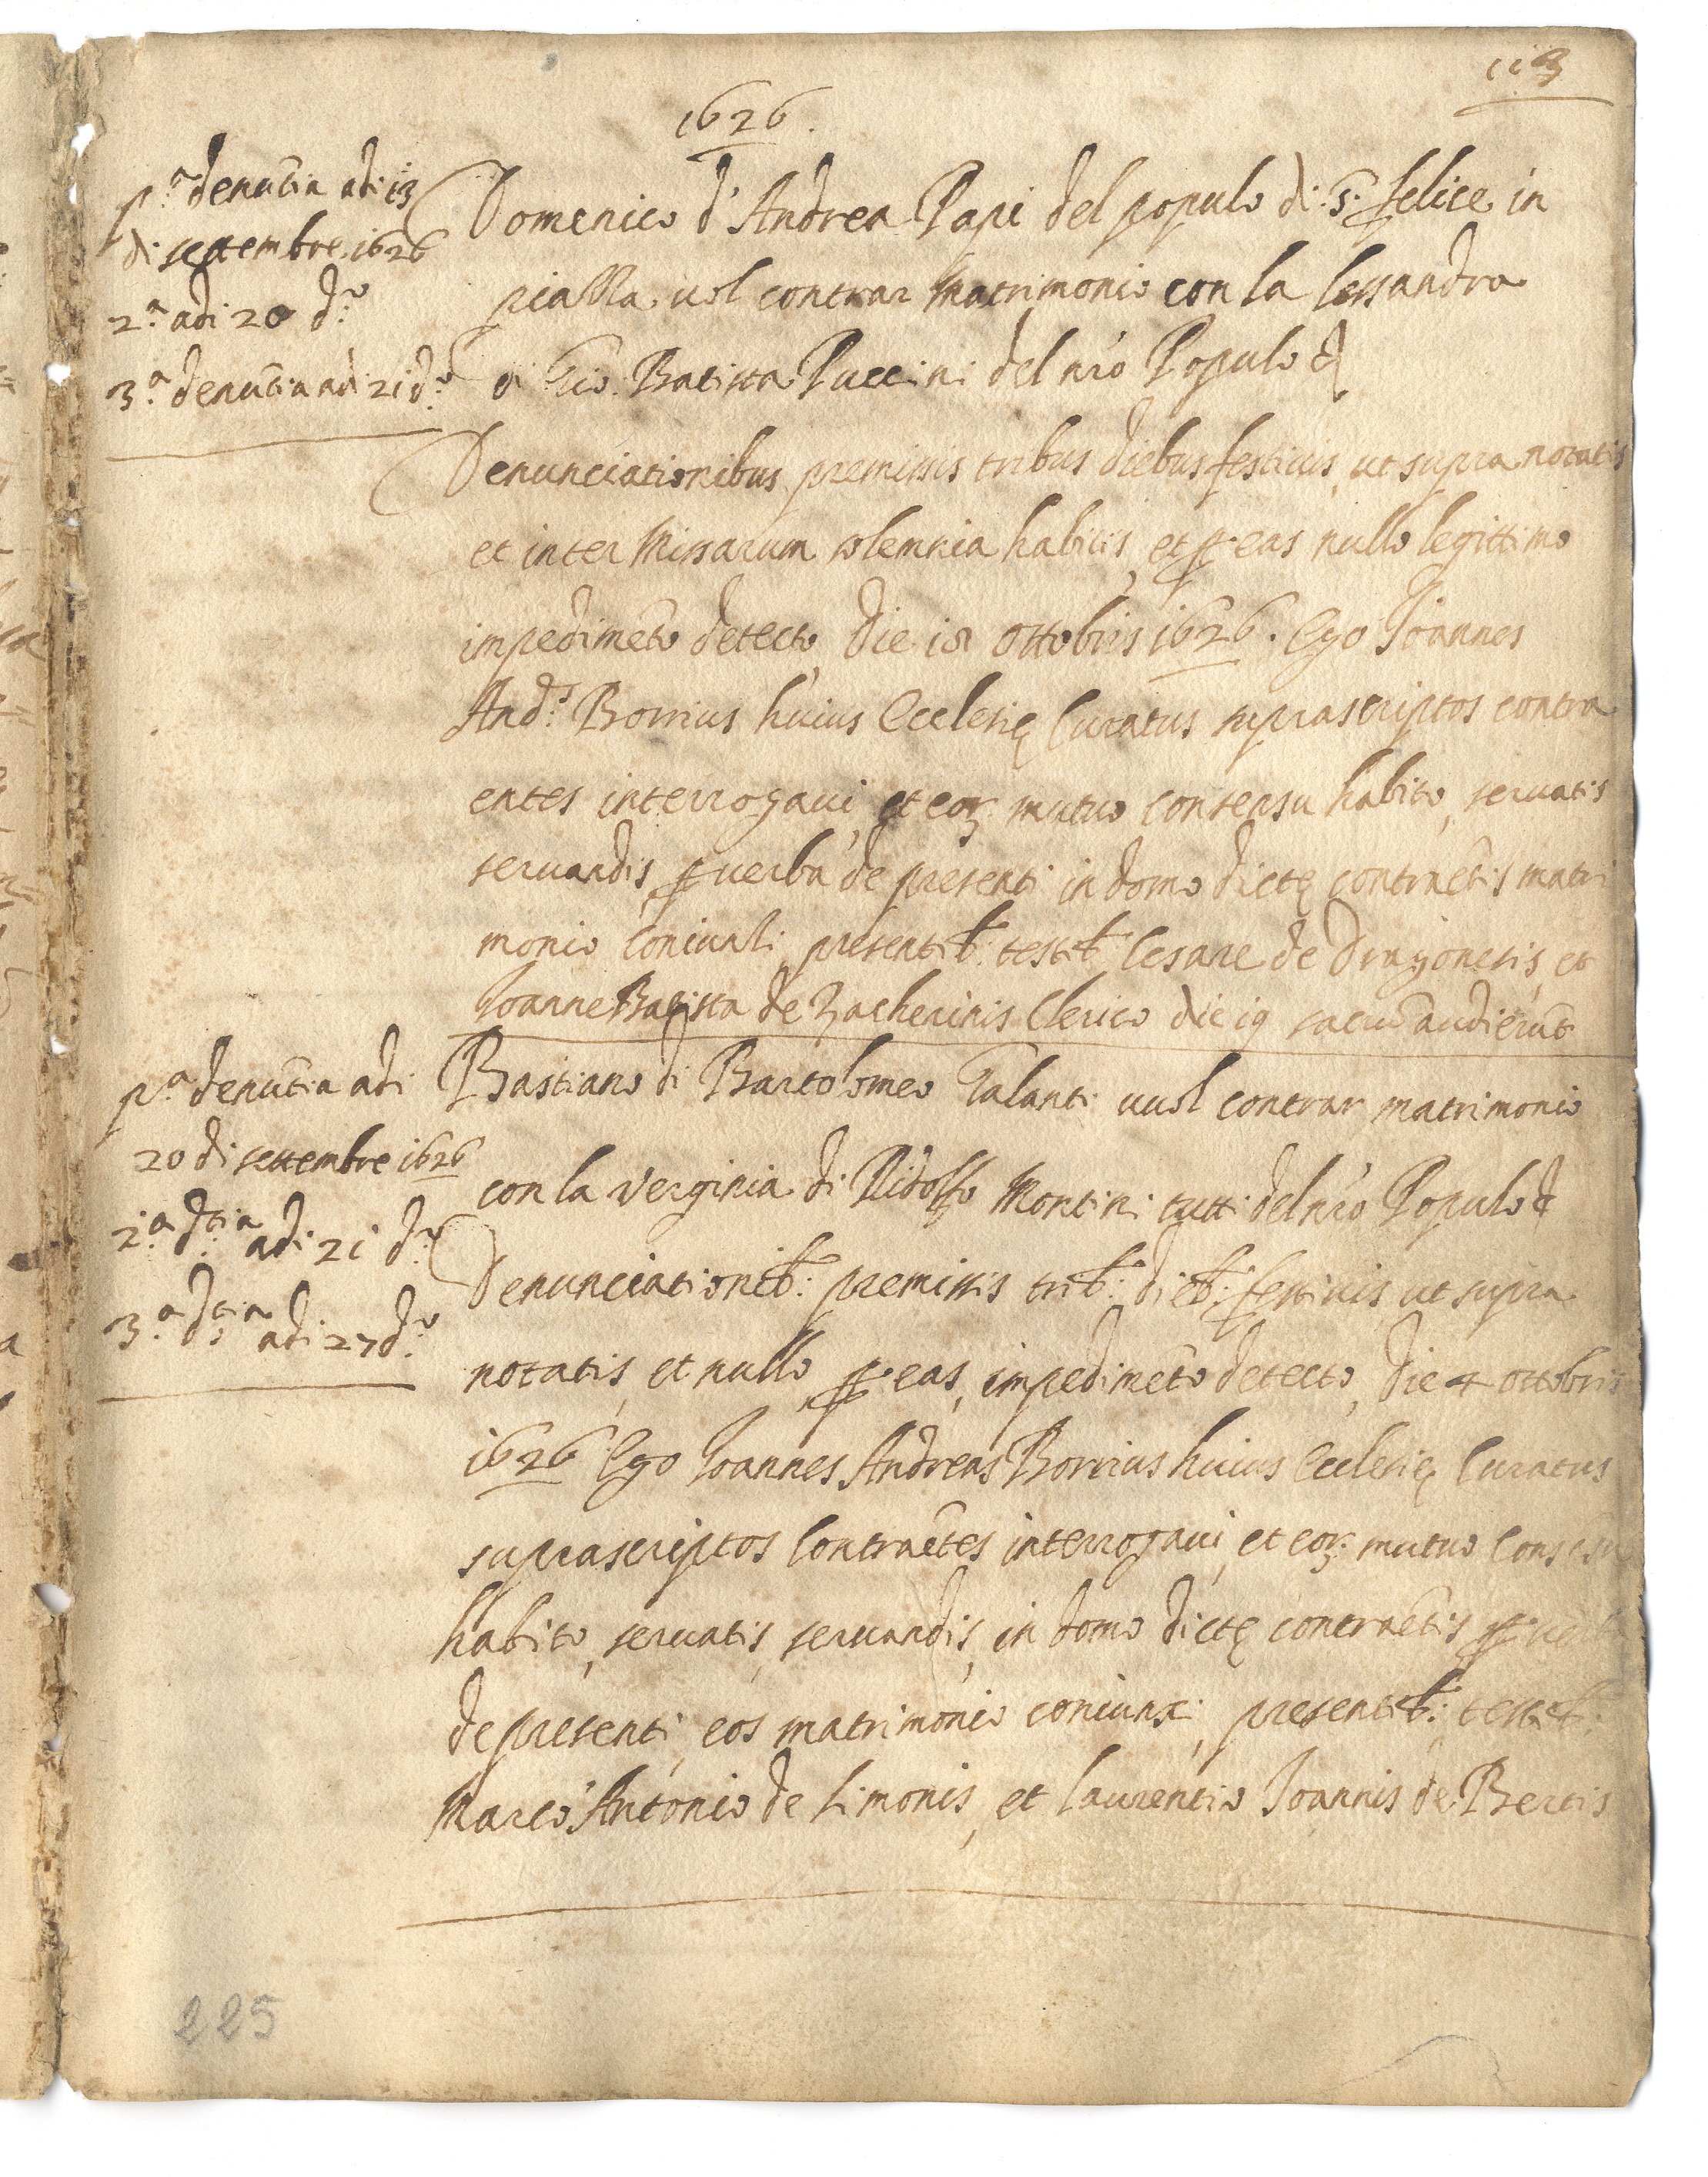 113
1626.
p.ª denũtia adi 13
di settembre 1626
2.ª adi 20 d.º
3.ª denũtia adi 21 d.º
Domenico d'Andrea Papi del populo di S. felice in
piazza uol contrar Matrimonio con la lessandra
di Gio. Batista Puccini del nro Populo &
Denunciationibus premissis tribus diebus festiuis, ut supra notatis
et inter Missarum solemnia habitis, et p eas nullo legittimo
impedimẽto detecto, Die 18 Ottobris 1626. Ego Joannes
And.s Borrius huius Ecclesię Curatus suprascriptos contra
entes interrogaui, et eoꝝ mutuo consensu habito, seruatis
seruandis, p uerba de presenti in domo dictę contraẽtis matri
monio coniunxi presentib: testib: Cesare de Dragonetis, et
Joanne Batista de Zacherinis Clerico die 19 sacrũ audierũt
p.ª denũtia adi
20 di settembre 1626
2.ª d.tia adi 21 d.º
3.ª d.tia adi 27 d.º
Bastiano di Bartolomeo Galanti uuol contrar matrimonio
con la Verginia di Ridolfo Montini tutti del nro Populo &
Denunciationib: premissis trib: dieb: festiuis, ut supra
notatis, et nullo p eas, impedimẽto detecto, Die 4 Ottobris
1626 Ego Joannes Andreas Borrius huius Ecclesię Curatus
suprascriptos Contraẽtes interrogaui, et eoꝝ mutuo Consẽsu
habito, seruatis, seruandis, in domo dictę contraẽtis p uerba
de presenti, eos matrimonio coniunxi, presentib: testib:
Marco Antonio de Simonis, et Laurentio Joannis de Bertis
225